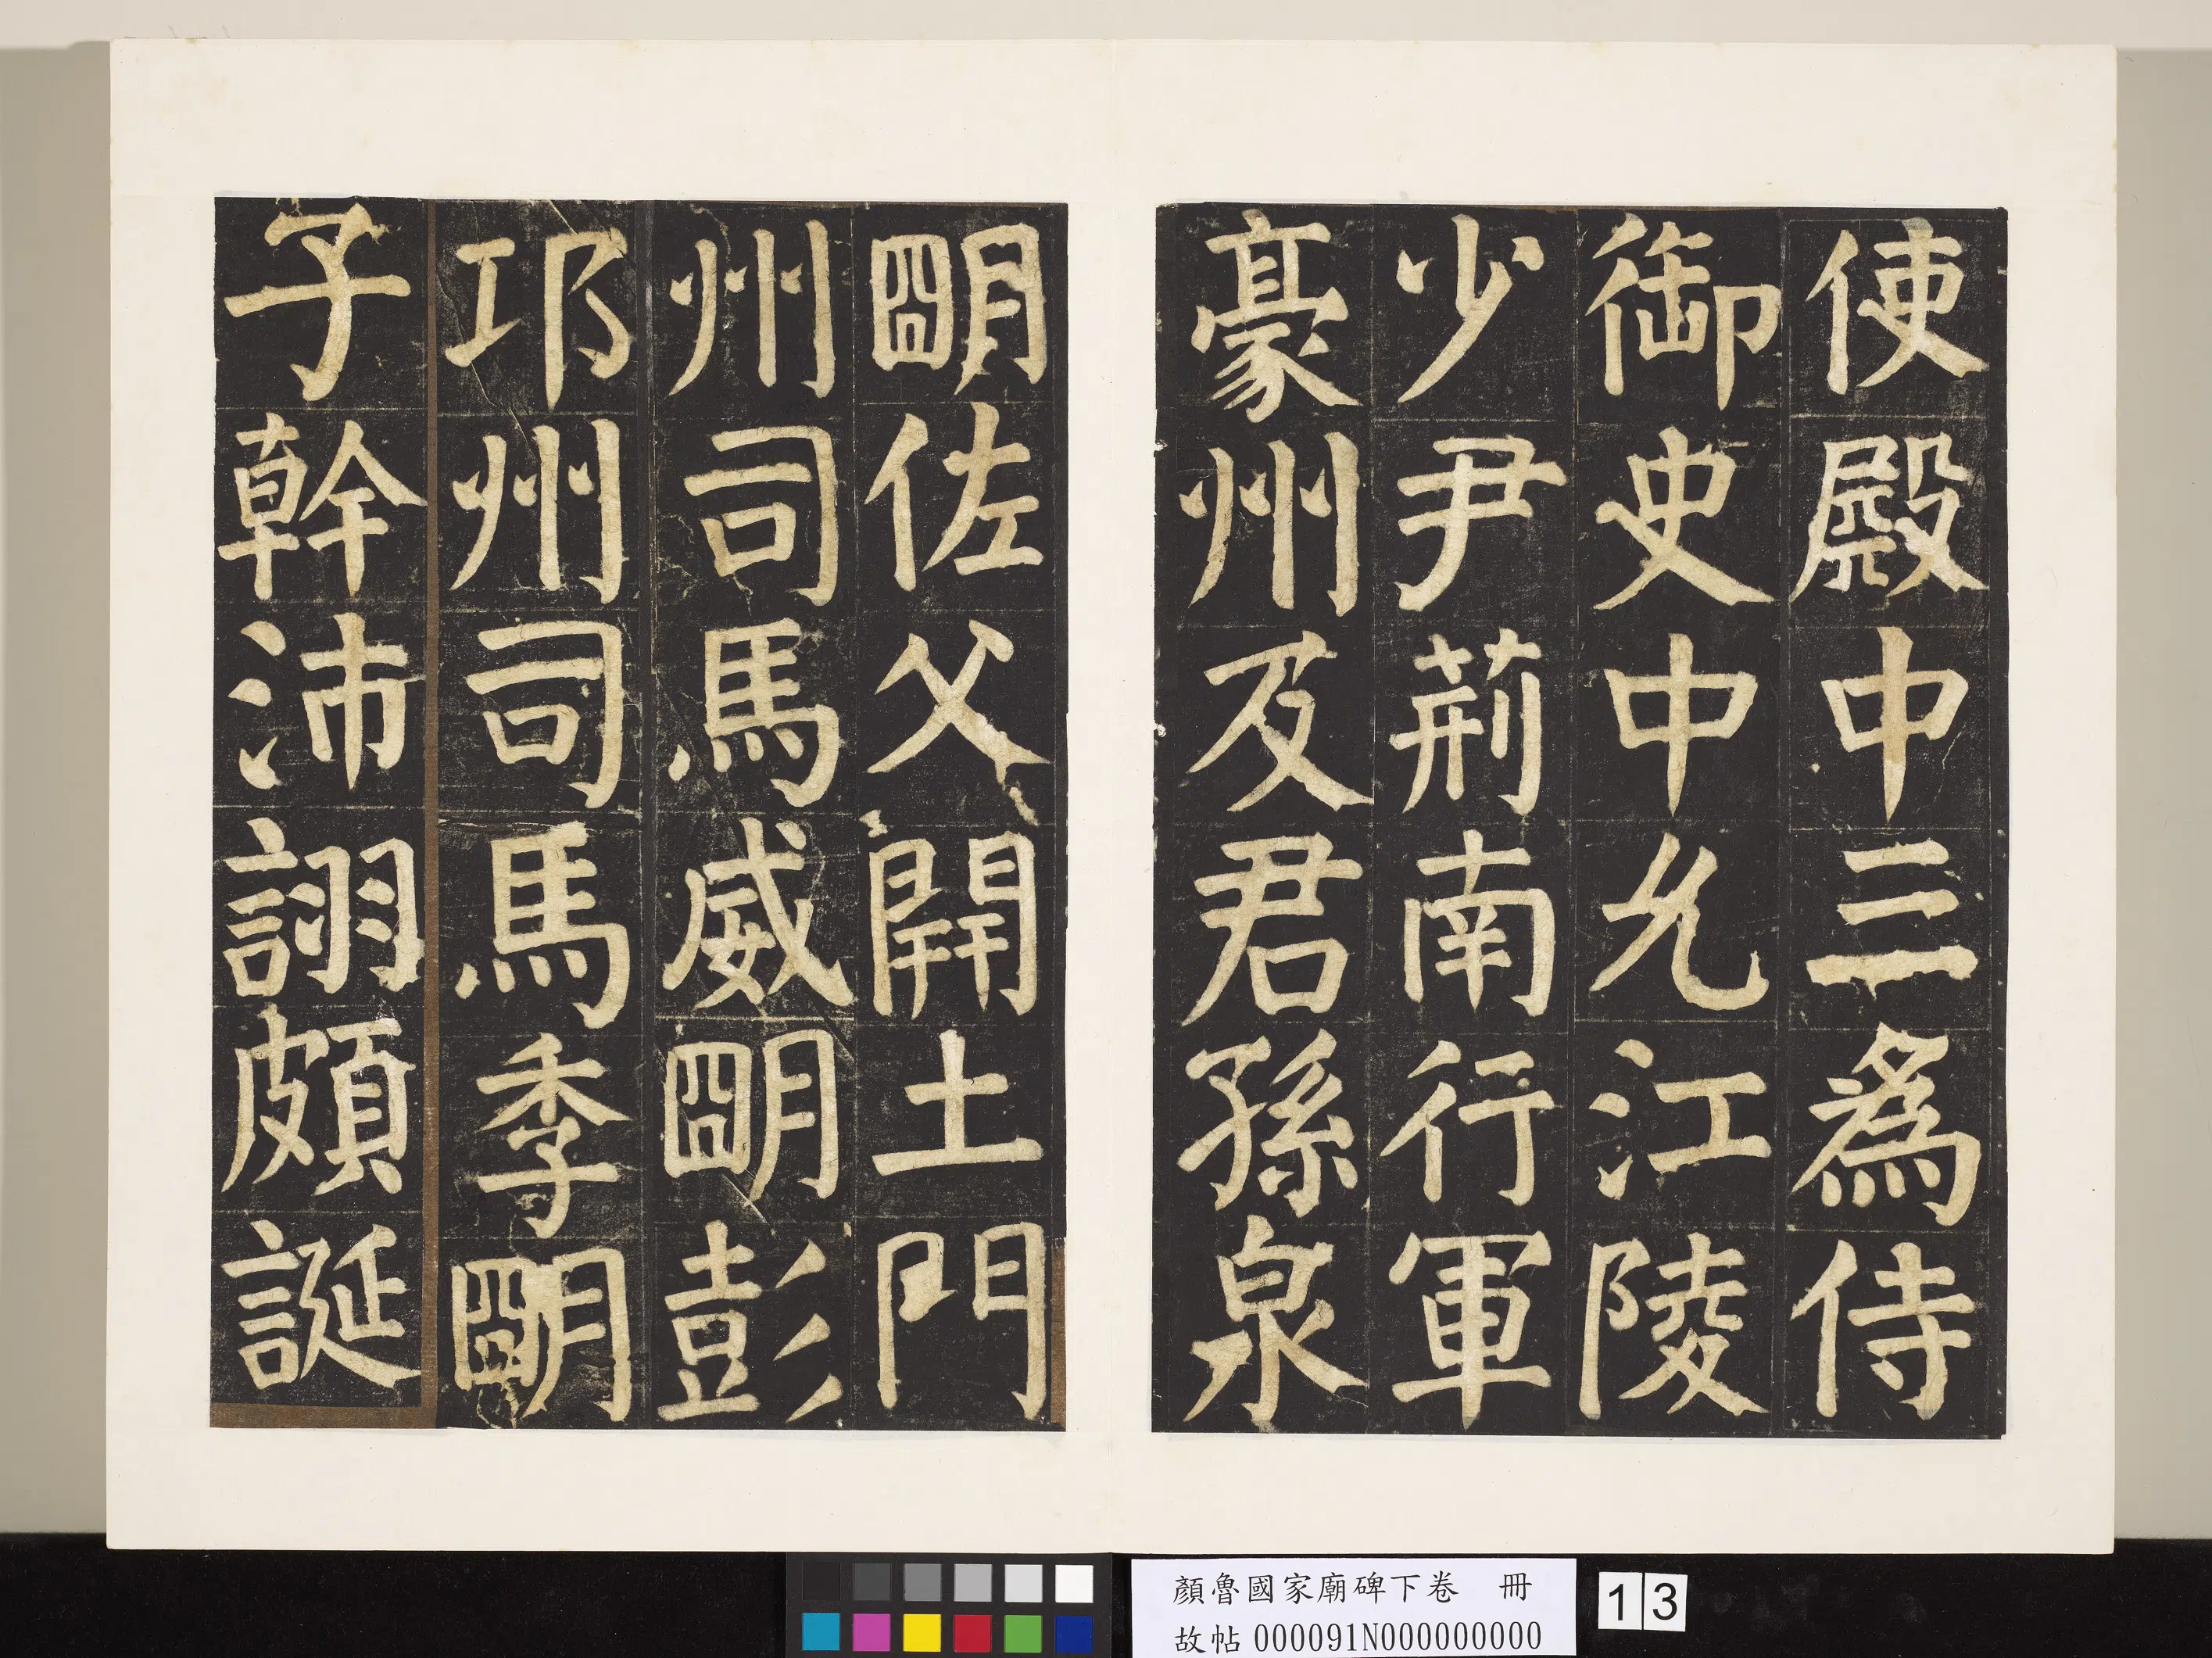 使殿中三為侍
御史中允江陵
少尹荊南行軍
豪州及君孫泉
朙佐父開土門
州司馬威朙彭
邛州司馬季朙
子幹沛詡頗誕
顏魯國家廟碑下卷 冊
故帖000091N000000000
13